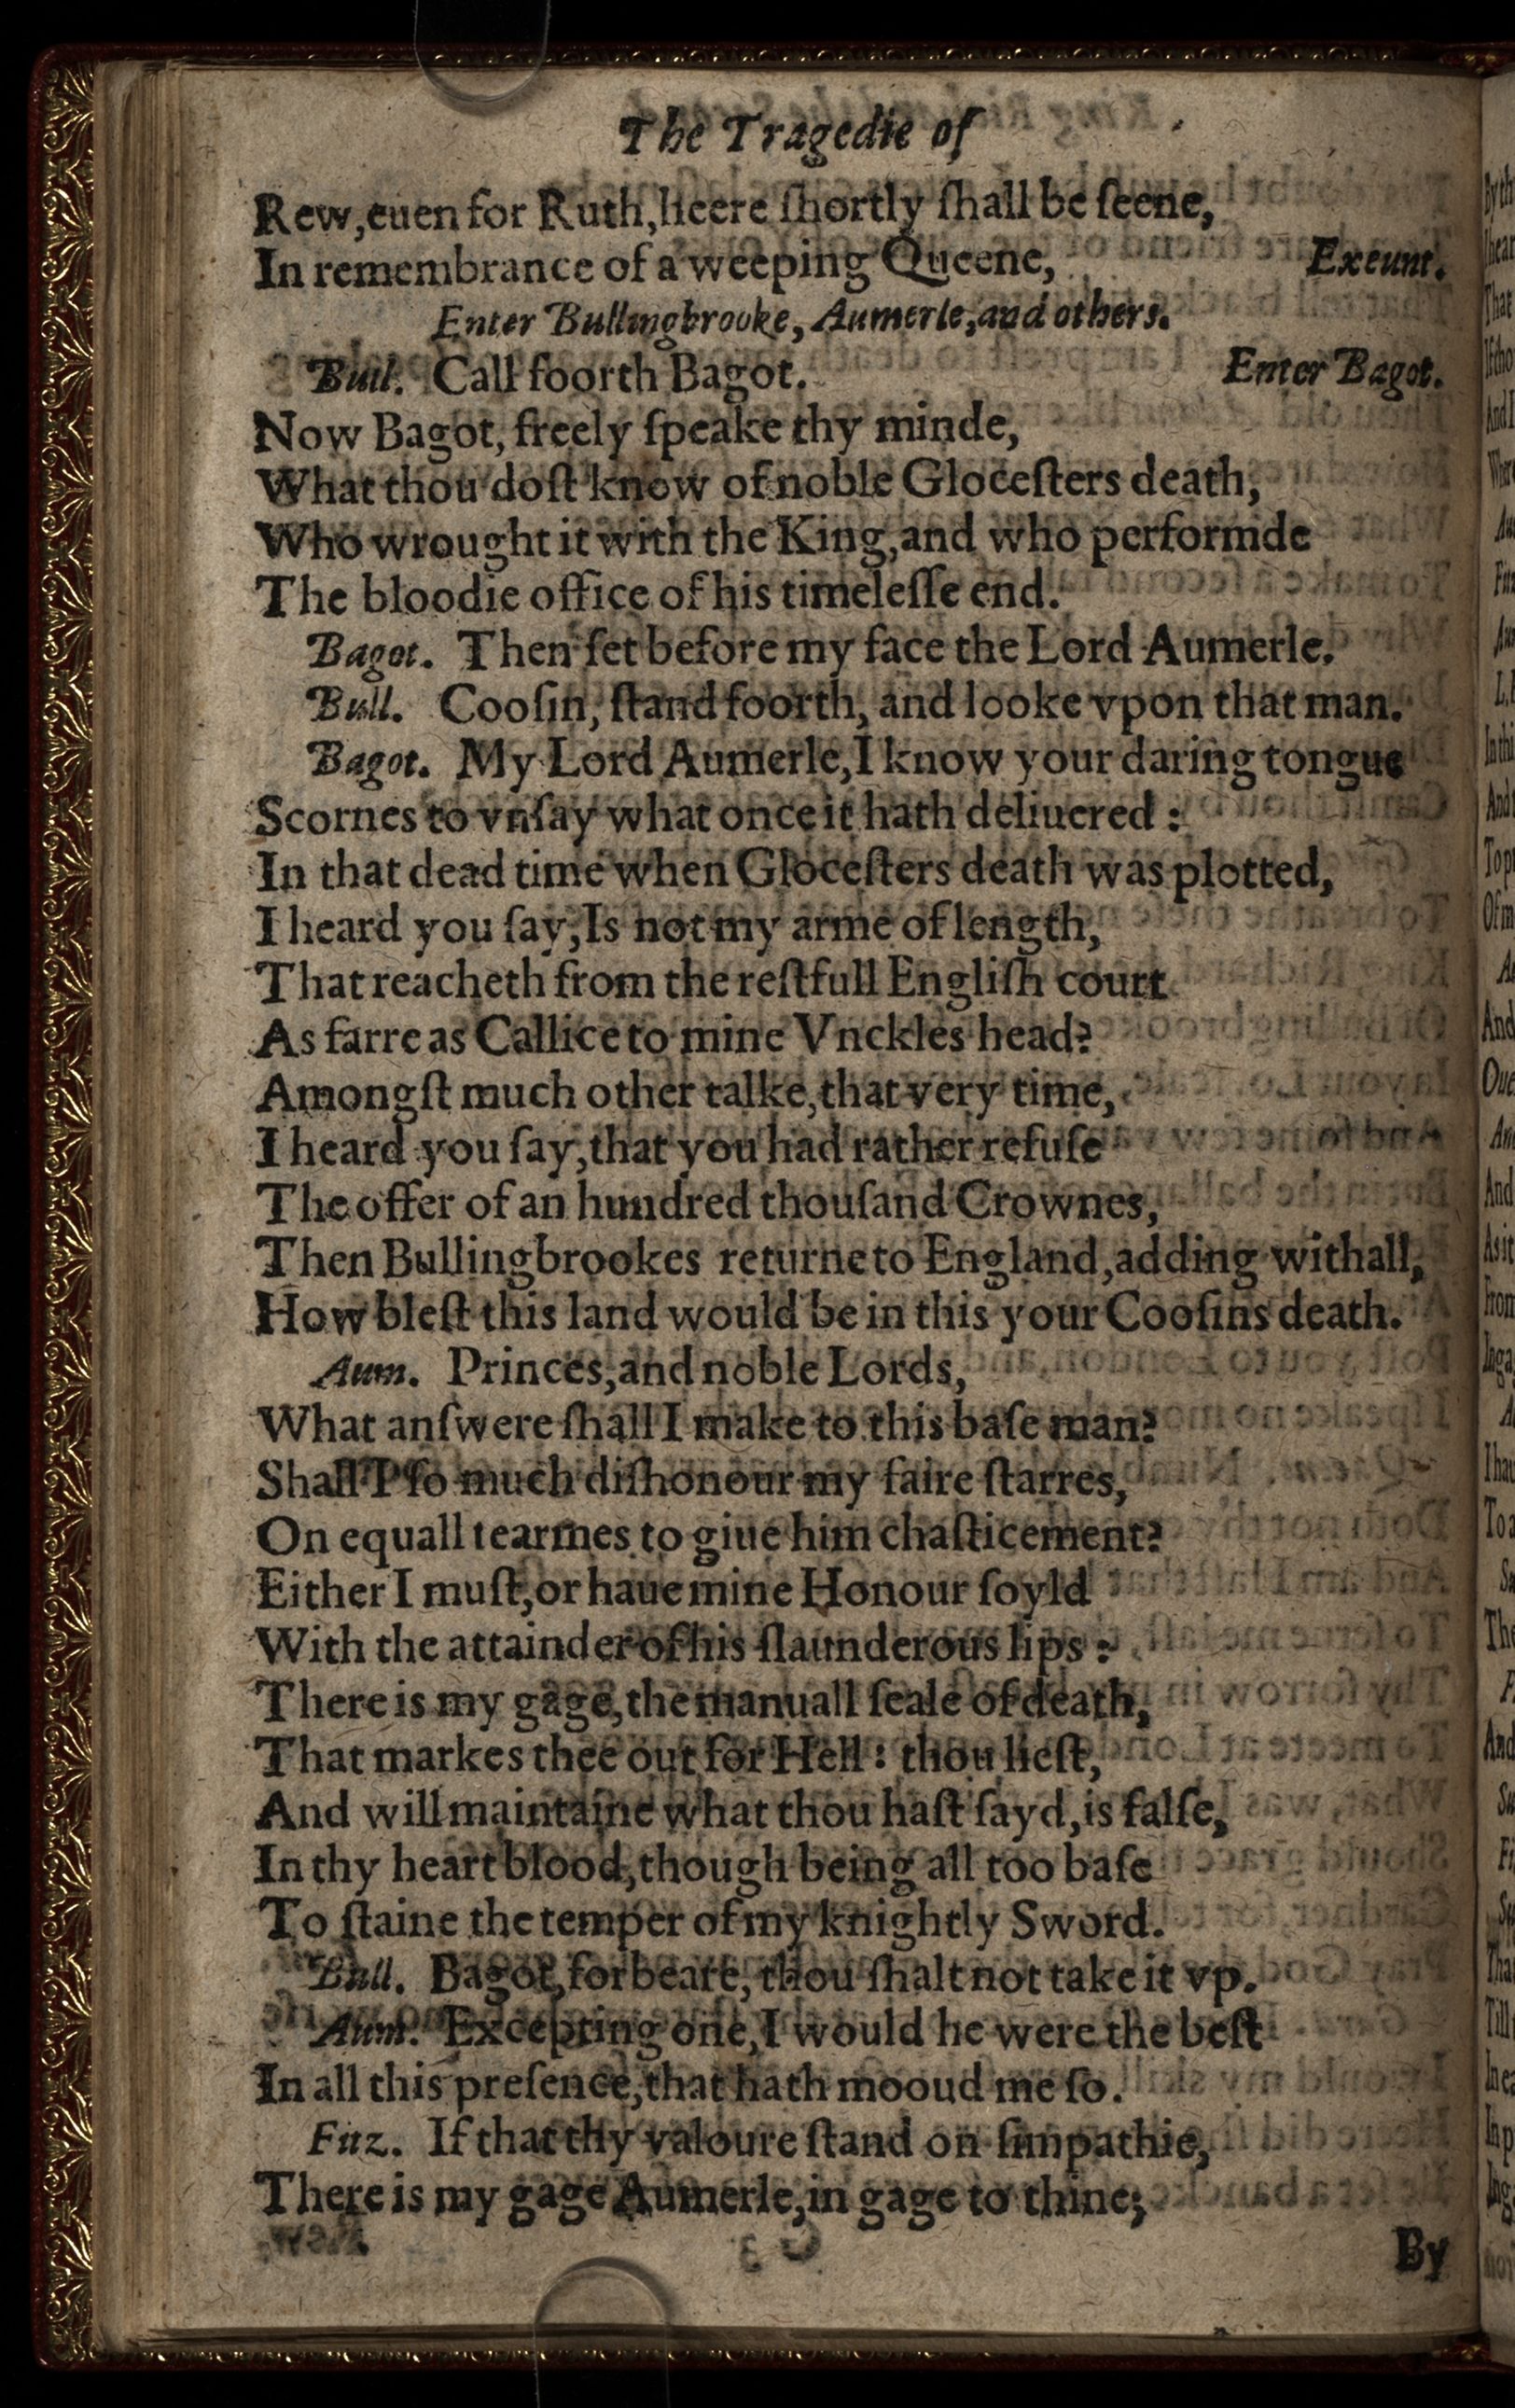 The Tragedie of
Rew,euen for Ruth,heere ſhortly ſhall be ſeene,
In remembrance of a weeping Queene, Exeunt.
Enter Bullingbrooke, Aumerle,and others.
Bull. Call foorth Bagot. Enter Bagot.
Now Bagot, freely ſpeake thy minde,
What thou doſt know of noble Gloceſters death,
Who wrought it with the King,and who performde
The bloodie office of his timeleſſe end.
Bagot. Then ſet before my face the Lord Aumerle.
Bull. Cooſin, ſtand foorth, and looke vpon that man.
Bagot. My Lord Aumerle,I know your daring tongue
Scornes to vnſay what once it hath deliuered :
In that dead time when Gloceſters death was plotted,
I heard you ſay,Is not my arme of length,
That reacheth from the reſtfull Engliſh court
As farre as Callice to mine Vnckles head?
Amongſt much other talke,that very time,
I heard you ſay,that you had rather refuſe
The offer of an hundred thouſand Crownes,
Then Bullingbrookes returne to England,adding withall,
How bleſt this land would be in this your Cooſins death.
Aum. Princes,and noble Lords,
What anſwere ſhall I make to this baſe man?
Shall I ſo much diſhonour my faire ſtarres,
On equall tearmes to giue him chaſticement?
Either I muſt,or haue mine Honour ſoyld
With the attainder of his ſlaunderous lips :
There is my gage,the manuall ſeale of death,
That markes thee out for Hell : thou lieſt,
And will maintaine what thou haſt ſayd,is falſe,
In thy heart blood,though being all too baſe
To ſtaine the temper of my knightly Sword.
Bull. Bagot,forbeare, thou ſhalt not take it vp.
Aum. Excepting one,I would he were the beſt
In all this preſence,that hath mooud me ſo.
Fitz. If that thy valoure ſtand on ſimpathie,
There is my gage Aumerle,in gage to thine;
By